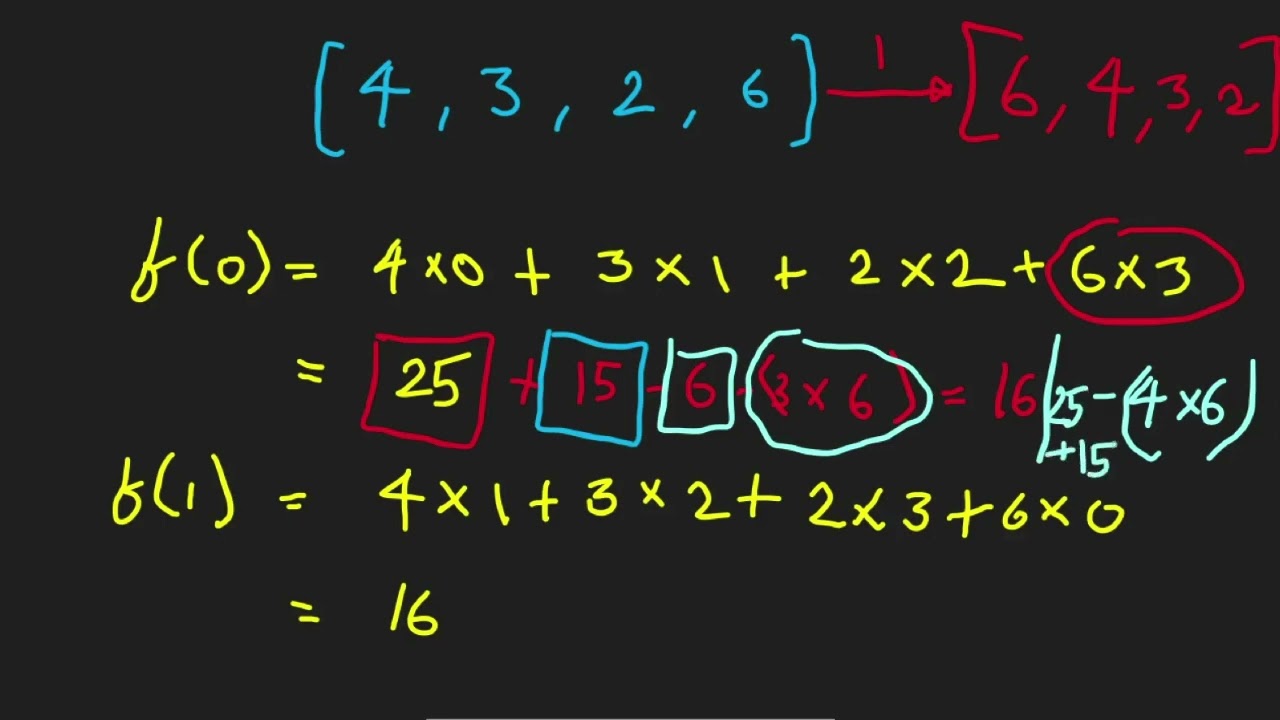 [4, 3, 2, 6] 1 → [6, 4, 3, 2]
f(0) = 4×0 + 3×1 + 2×2 + 6×3
= 25 + 15 - 6 - (3×6) = 16 | 25 - (4×6)
+15
f(1) = 4×1 + 3×2 + 2×3 + 6×0
= 16